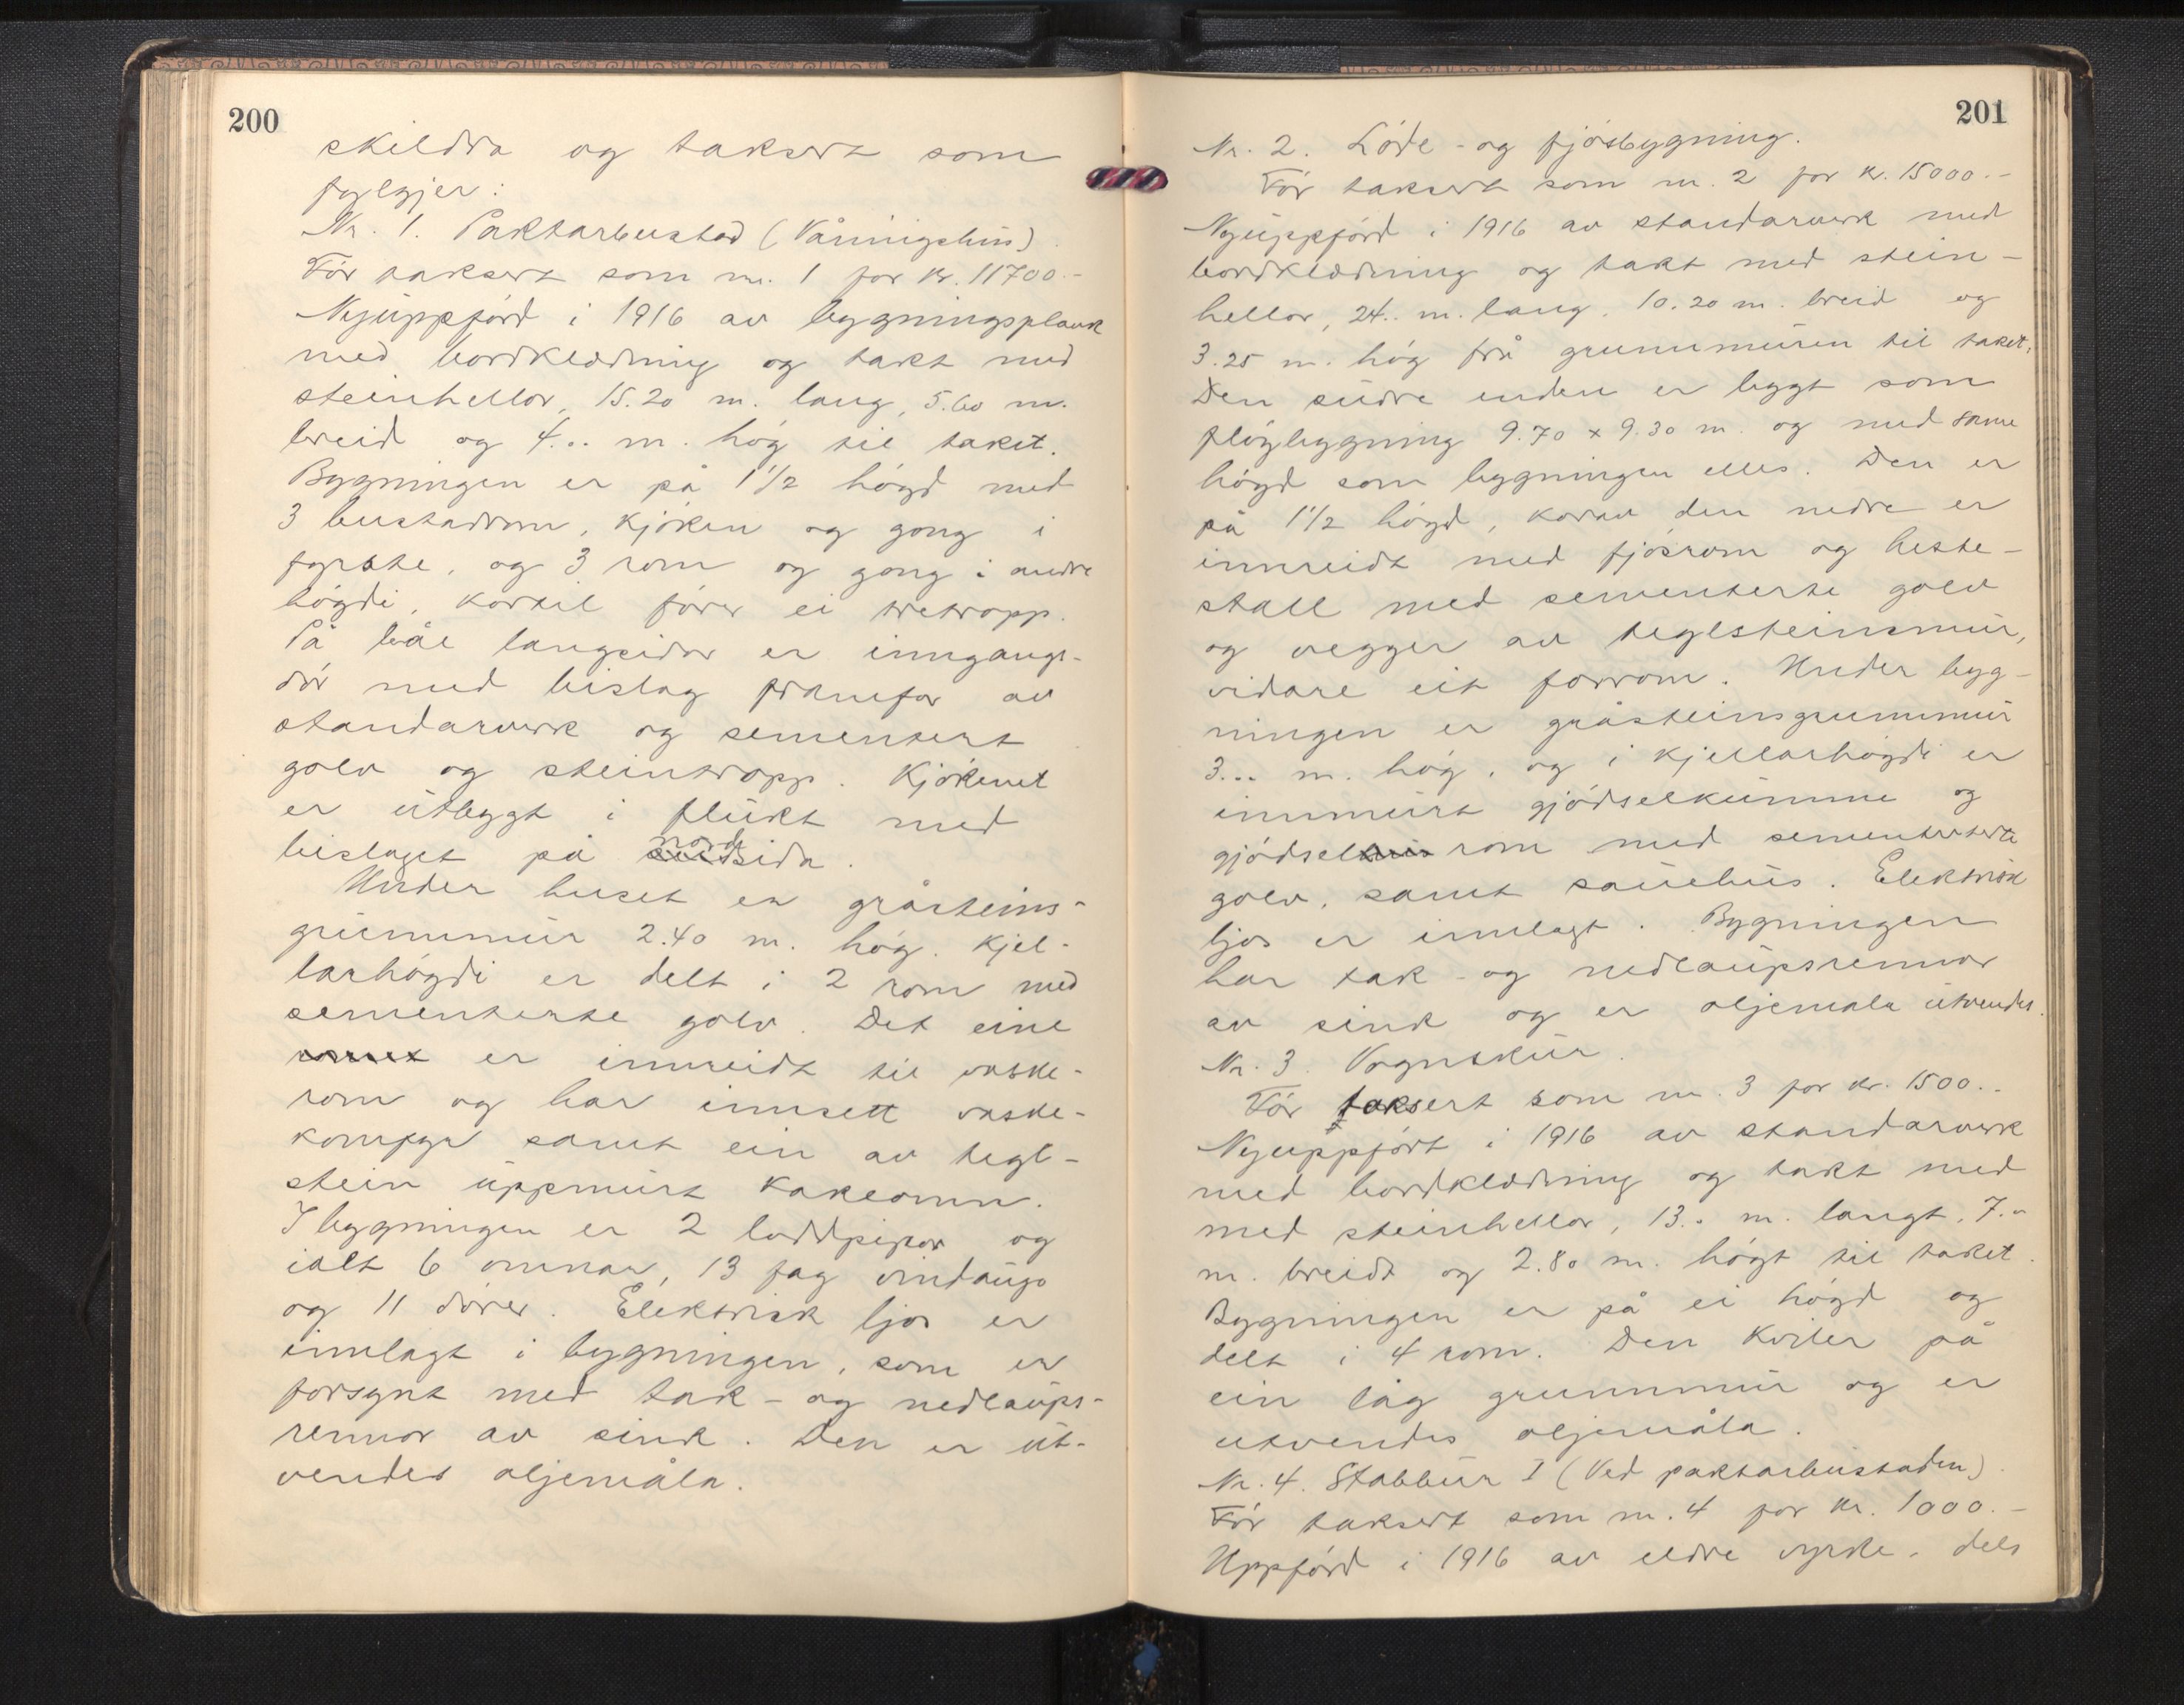 200
skildra og taksert som
fylgjer:
Nr. 1. Paktarbustad (Våningshus).
Før taksert som nr. 1 for kr. 11700.-
Nyuppförd i 1916 av bygningsplank
med bordklædning og takt med
steinhellor, 15.20 m. lang, 5.60 m.
breid og 4... m. høg til taket.
Bygningen er på 1 1/2 høgd med
3 bustadrom, kjøken og gong i
fyrste, og 3 rom og gong i andre
høgdi, kortil fører ei tretropp.
På båe langsidor er inngangs-
dør med bislag framfor av
standarverk og sementert
golv og steintropp. Kjøkenet
er utbygt i flukt med
bislaget på nordsida.
Under huset er gråsteins-
grunnmur 2.40 m. høg. Kjel-
larhøgdi er delt i 2 rom med
sementerte golv. Det eine
romet er innreidt til vaske-
rom og har innsett vaske-
komfyr samt ein av tegl-
stein uppmurt kakeomn.
I bygningen er 2 loddpipor og
ialt 6 omnar, 13 fag vindaugo
og 11 dører. Elektrisk ljos er
innlagt i bygningen, som er
forsynt med tak- og nedlaups-
rennor av sink. Den er ut-
vendes oljemåla.
201
Nr. 2. Løde- og fjøsbygning.
Før taksert som nr. 2 for kr. 15000.-
Nyuppförd i 1916 av standarverk med
bordklædning og takt med stein-
hellor, 24.. m. lang, 10.20 m. breid og
3.25 m. høg frå grunnmuren til taket.
Den sudre enden er bygt som
fløybygning 9.70 x 9.30 m. og med same
høgd som bygningen elles. Den er
på 1 1/2 høgd, korav den nedre er
innreidt med fjøsrom og heste-
stall med sementerte golv
og vegger av teglsteinsmur,
vidare eit forrom. Under byg-
ningen er gråsteinsgrunnmur
3... m. høg, og i kjellarhøgdi er
innmurt gjødselkumme og
gjødselhus rom med sementerte
golv, samt sauehus. Elektrisk
ljos er innlagt. Bygningen
har tak- og nedlaupsrennor
av sink og er oljemåla utvendes.
Nr. 3. Vognskur.
Før taksert som nr. 3 for kr. 1500..
Nyuppført i 1916 av standarverk
med bordklædning og takt med
med steinhellor, 13.. m. langt, 7..
m. breidt og 2.80 m. høgt til taket.
Bygningen er på ei høgd og
delt i 4 rom. Den kviler på
ein låg grunnmur og er
utvendes oljemåla.
Nr. 4. Stabbur I (Ved paktarbustaden).
Før taksert som nr. 4 for kr. 1000.-
Uppförd i 1916 av eldre vyrke, dels